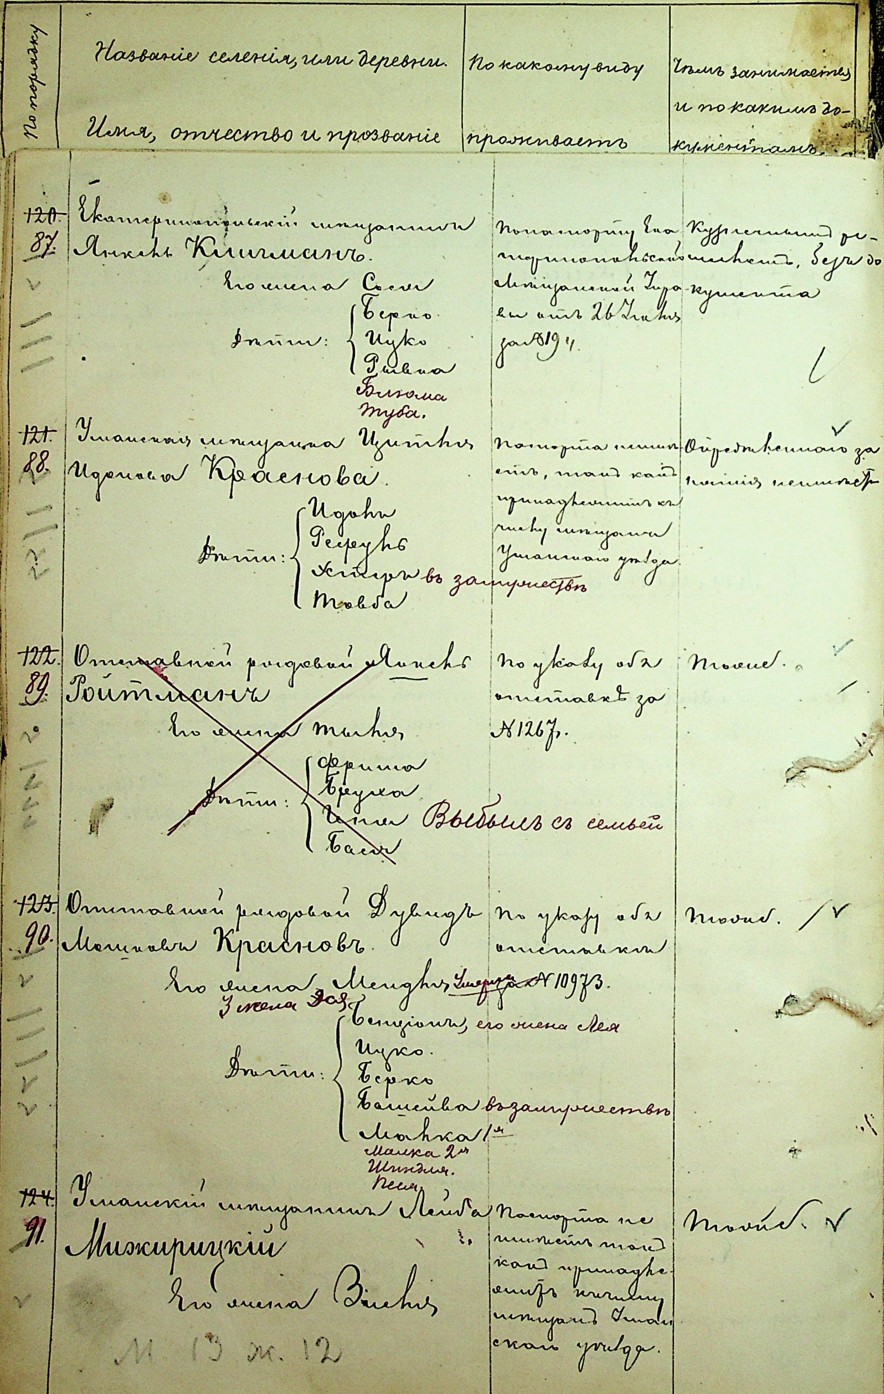 По порядку
Названіе селенія, или деревни.
Имя, отчество и прозваніе
По какому виду
проживаетъ
Чѣмъ занимается
и по какимъ до-
кументамъ.
120.
87.
Екатеринопольскій мѣщанинъ
Янкель Клигманъ.
Его жена Сося
Дѣти:
Берко
Ицко
Рывка
Блюма
Туба.
по паспорту Ека
теринопольской
Мѣщанской Упра
вы отъ 26 Іюля
за №19
Кузнечнымъ ре-
месломъ, безъ до
кумента
121.
88.
Уманская мѣщанка
Краснова.
Дѣти:
Идель
Хтура въ замужествѣ
Товба
Паспорта не имѣ-
етъ, такъ какъ
принадлежитъ къ
числу мѣщанъ
Уманскаго уѣзда
Опредѣленнаго за
нятія не имѣетъ
122.
89.
Отставной рядовой Янкель
Ройтманъ
Его жена
Дѣти:
Фрима
Бруха
Бася
Выбылъ съ семьей
По указу объ
отставкѣ за
№1267.
Тоже.
123.
90.
Отставной рядовой Дувидъ
Мошковъ Красновъ.
Его жена
Умерла
за № 10973.
Дѣти:
Бенціонъ, его жена Лея
Ицко.
Берко
Башейва въ замужествѣ
Малка 1я
Малка 2я
Шиндля.
Песя
По указу объ
отставкѣ
Тоже.
124.
91.
Уманскій мѣщанинъ Лейба
Мижирицкій
Его жена
Паспорта не
имѣетъ такъ
какъ принадле-
житъ къ числу
мѣщанъ Уман
скаго уѣзда.
Тоже.
М 13 ж. 12